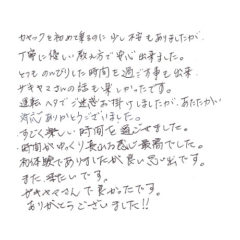 カヤックを初めて乗るのに少し不安もありましたが、
丁寧に優しい教え方で安心出来ました。
とても のんびりした時間を過ごす事も出来
ザキヤマさんの話も楽しかったです。
運転ヘタでご迷惑お掛けしましたが、あたたかい
対応ありがとうございました。
すごく楽しい時間を過ごせました。
時間がゆっくり流れる感じ最高でした。
初体験でありましたが良い思い出です。
また来たいです。
ザキヤマさんで良かったです。
ありがとうございました!!